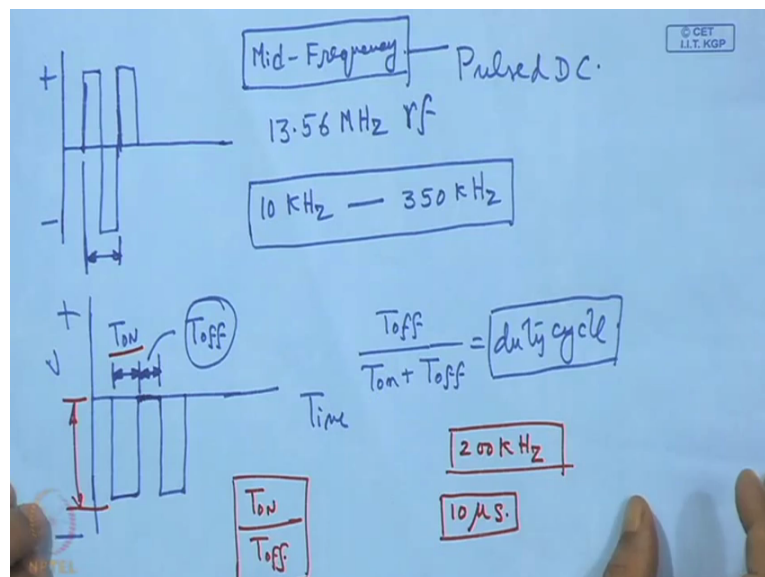 © CET
I.I.T. KGP
Mid-Frequency
Pulsed DC.
13.56 MHz rf
10 KHz — 350 KHz
+
-
+
V
-
TON
Toff
Time
Toff
Ton + Toff
= duty cycle
TON
Toff
200 KHz
10 μs.
NPTEL